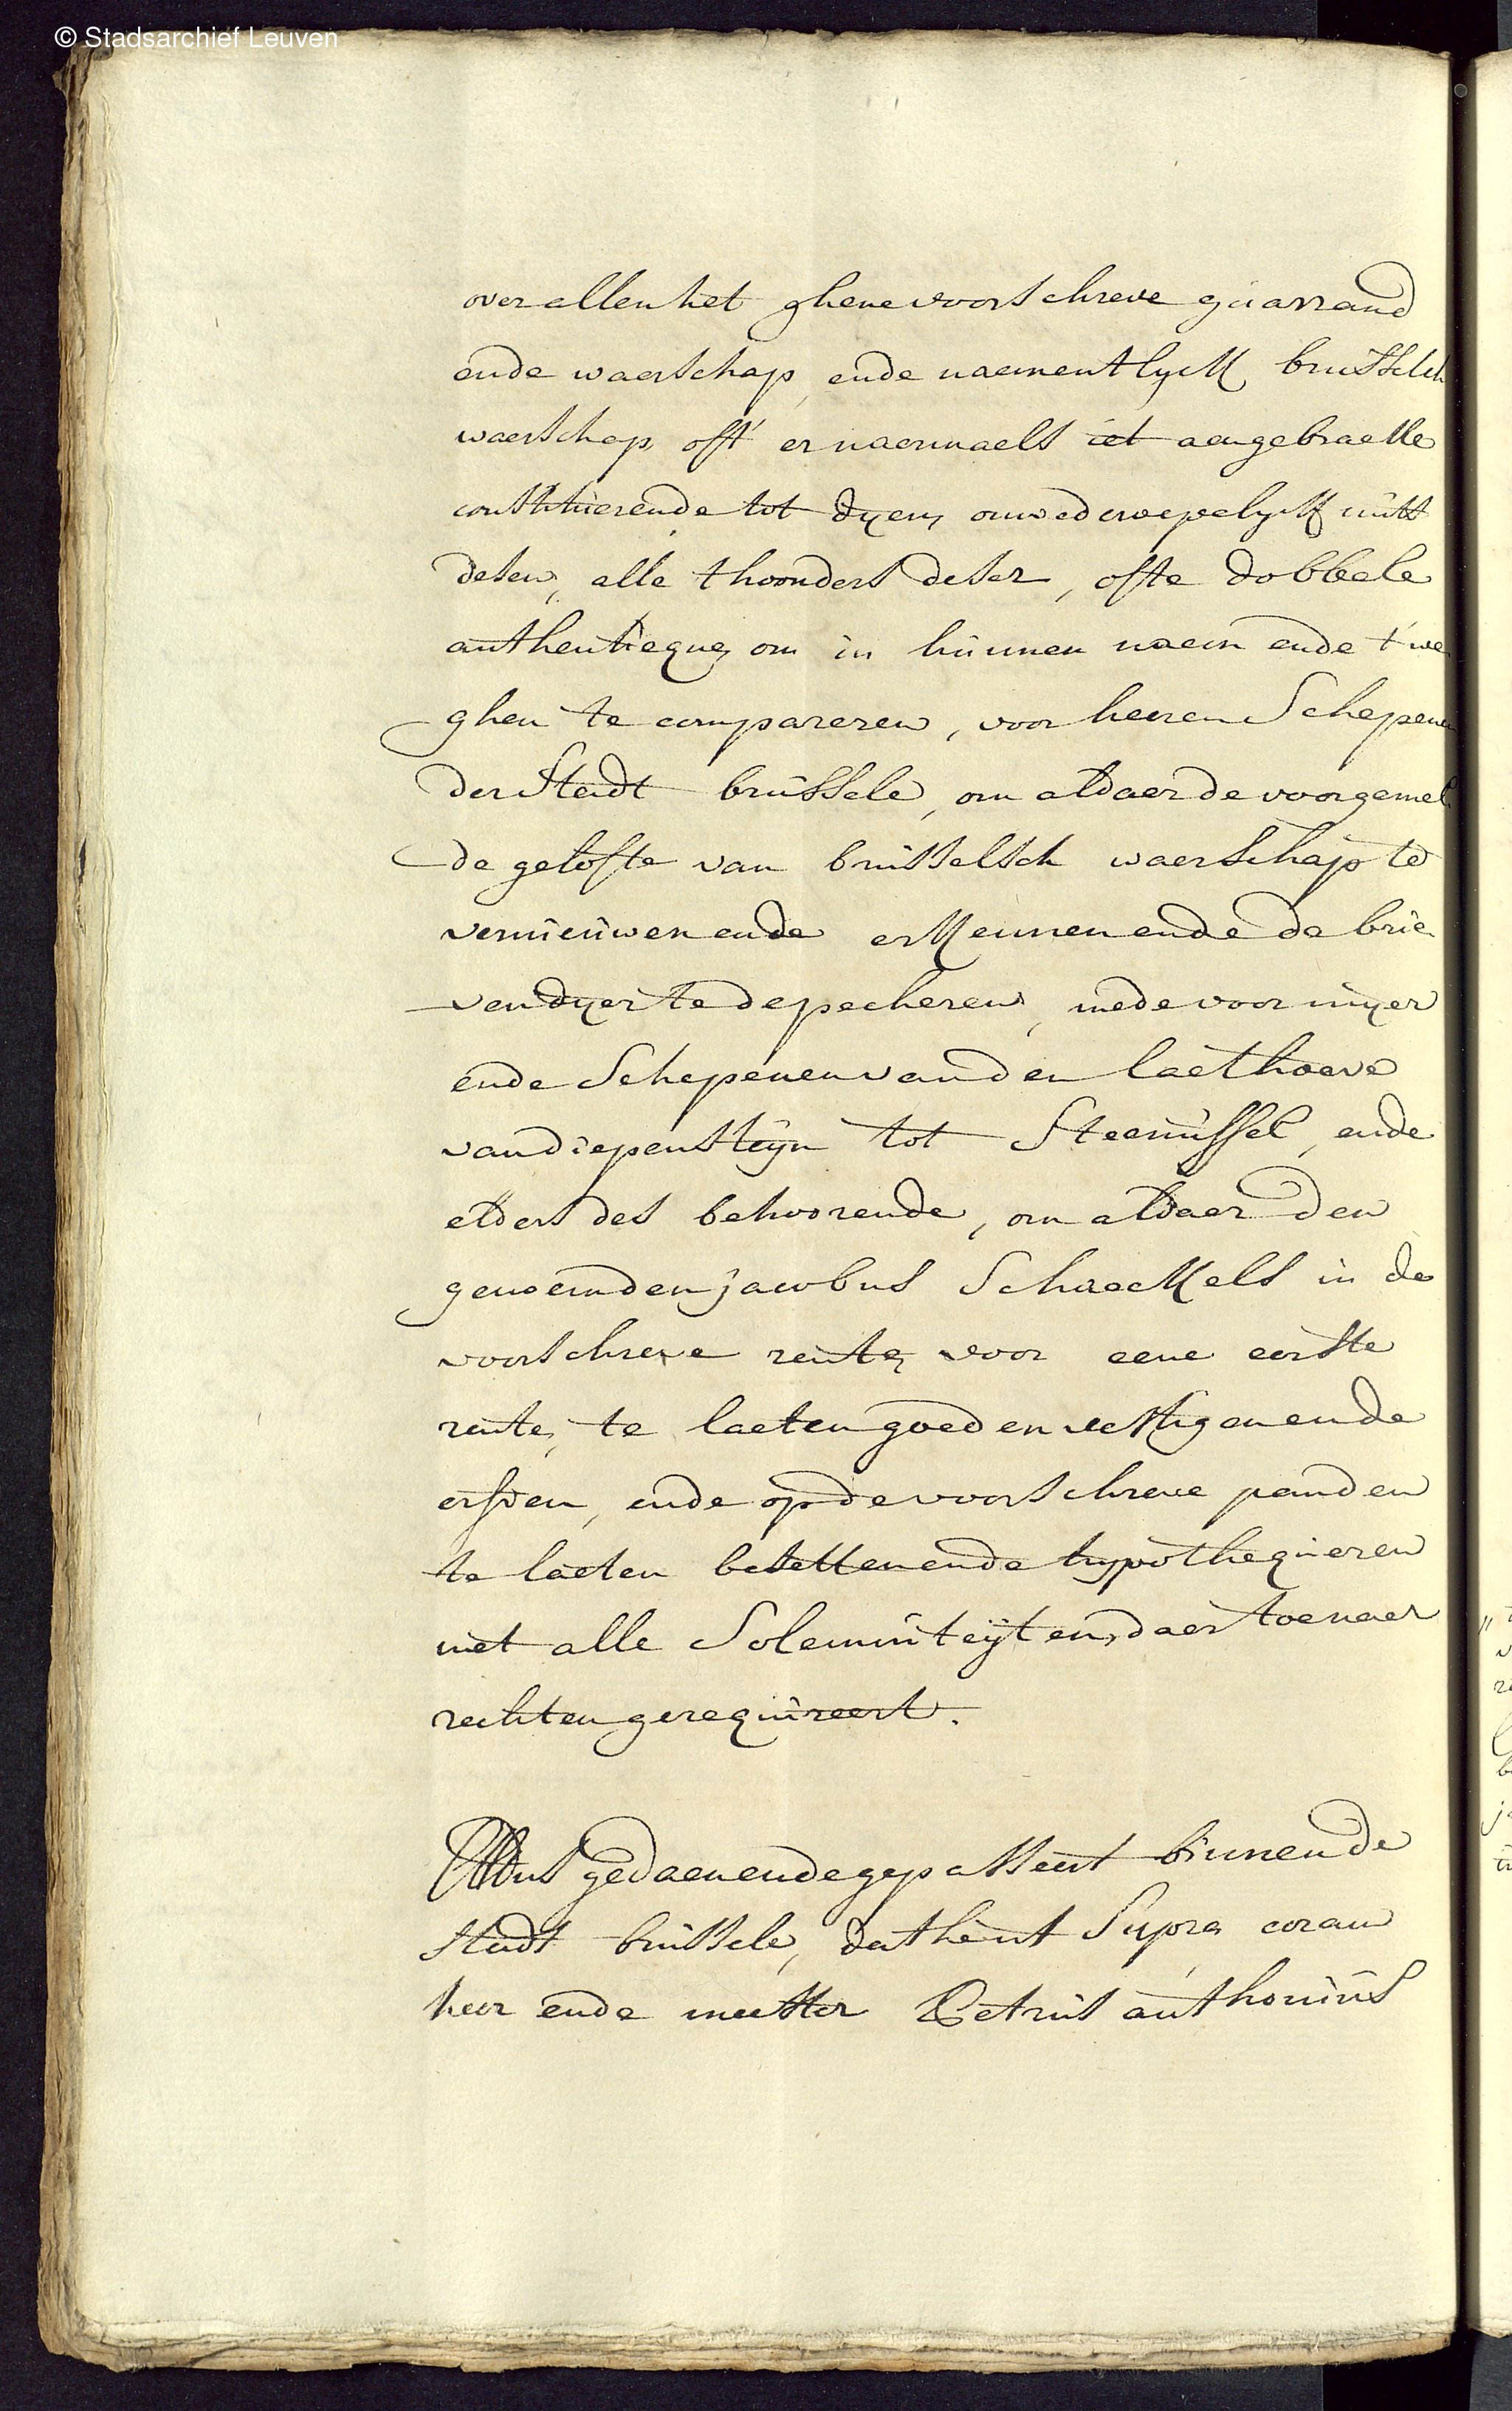 © Stadsarchief Leuven
over allen het ghene voorschreve guarrand
ende waerschap, ende naementlyck brusselsch
waerschap, oft' er naermaels iet aengebraecke
constituerende tot dyen, onwederroepelyck mits
desen, alle thoonders deser, ofte dobbele
authentieque, om in hunnen naem ende t'we
ghen te compareren, voor heeren Schepenen
der Stadt brussele, om aldaer de voorgemel
de gelofte van brusselsch waerschap te
vernieuwen ende erkennen ende de brie
ven dyer te depecheren, mede voor meyer
ende Schepenen van den laethoeve
van diepensteyn tot Steenuffel, ende
elders des behoorende, om aldaer den
genoemden jacobus Schaeckels in de
voorschreve rente, voor eene eerste
rente, te laeten goeden vestigen ende
erfven, ende op de voorschreve panden
te laeten besetten ende hypothequeren
met alle Solemniteyten, daer toe naer
rechten gerequireert.
Aldus gedaen ende gepasseert binnen de
Stadt brussele, dathe ut Supra coram
heer ende meester Petrus anthonius